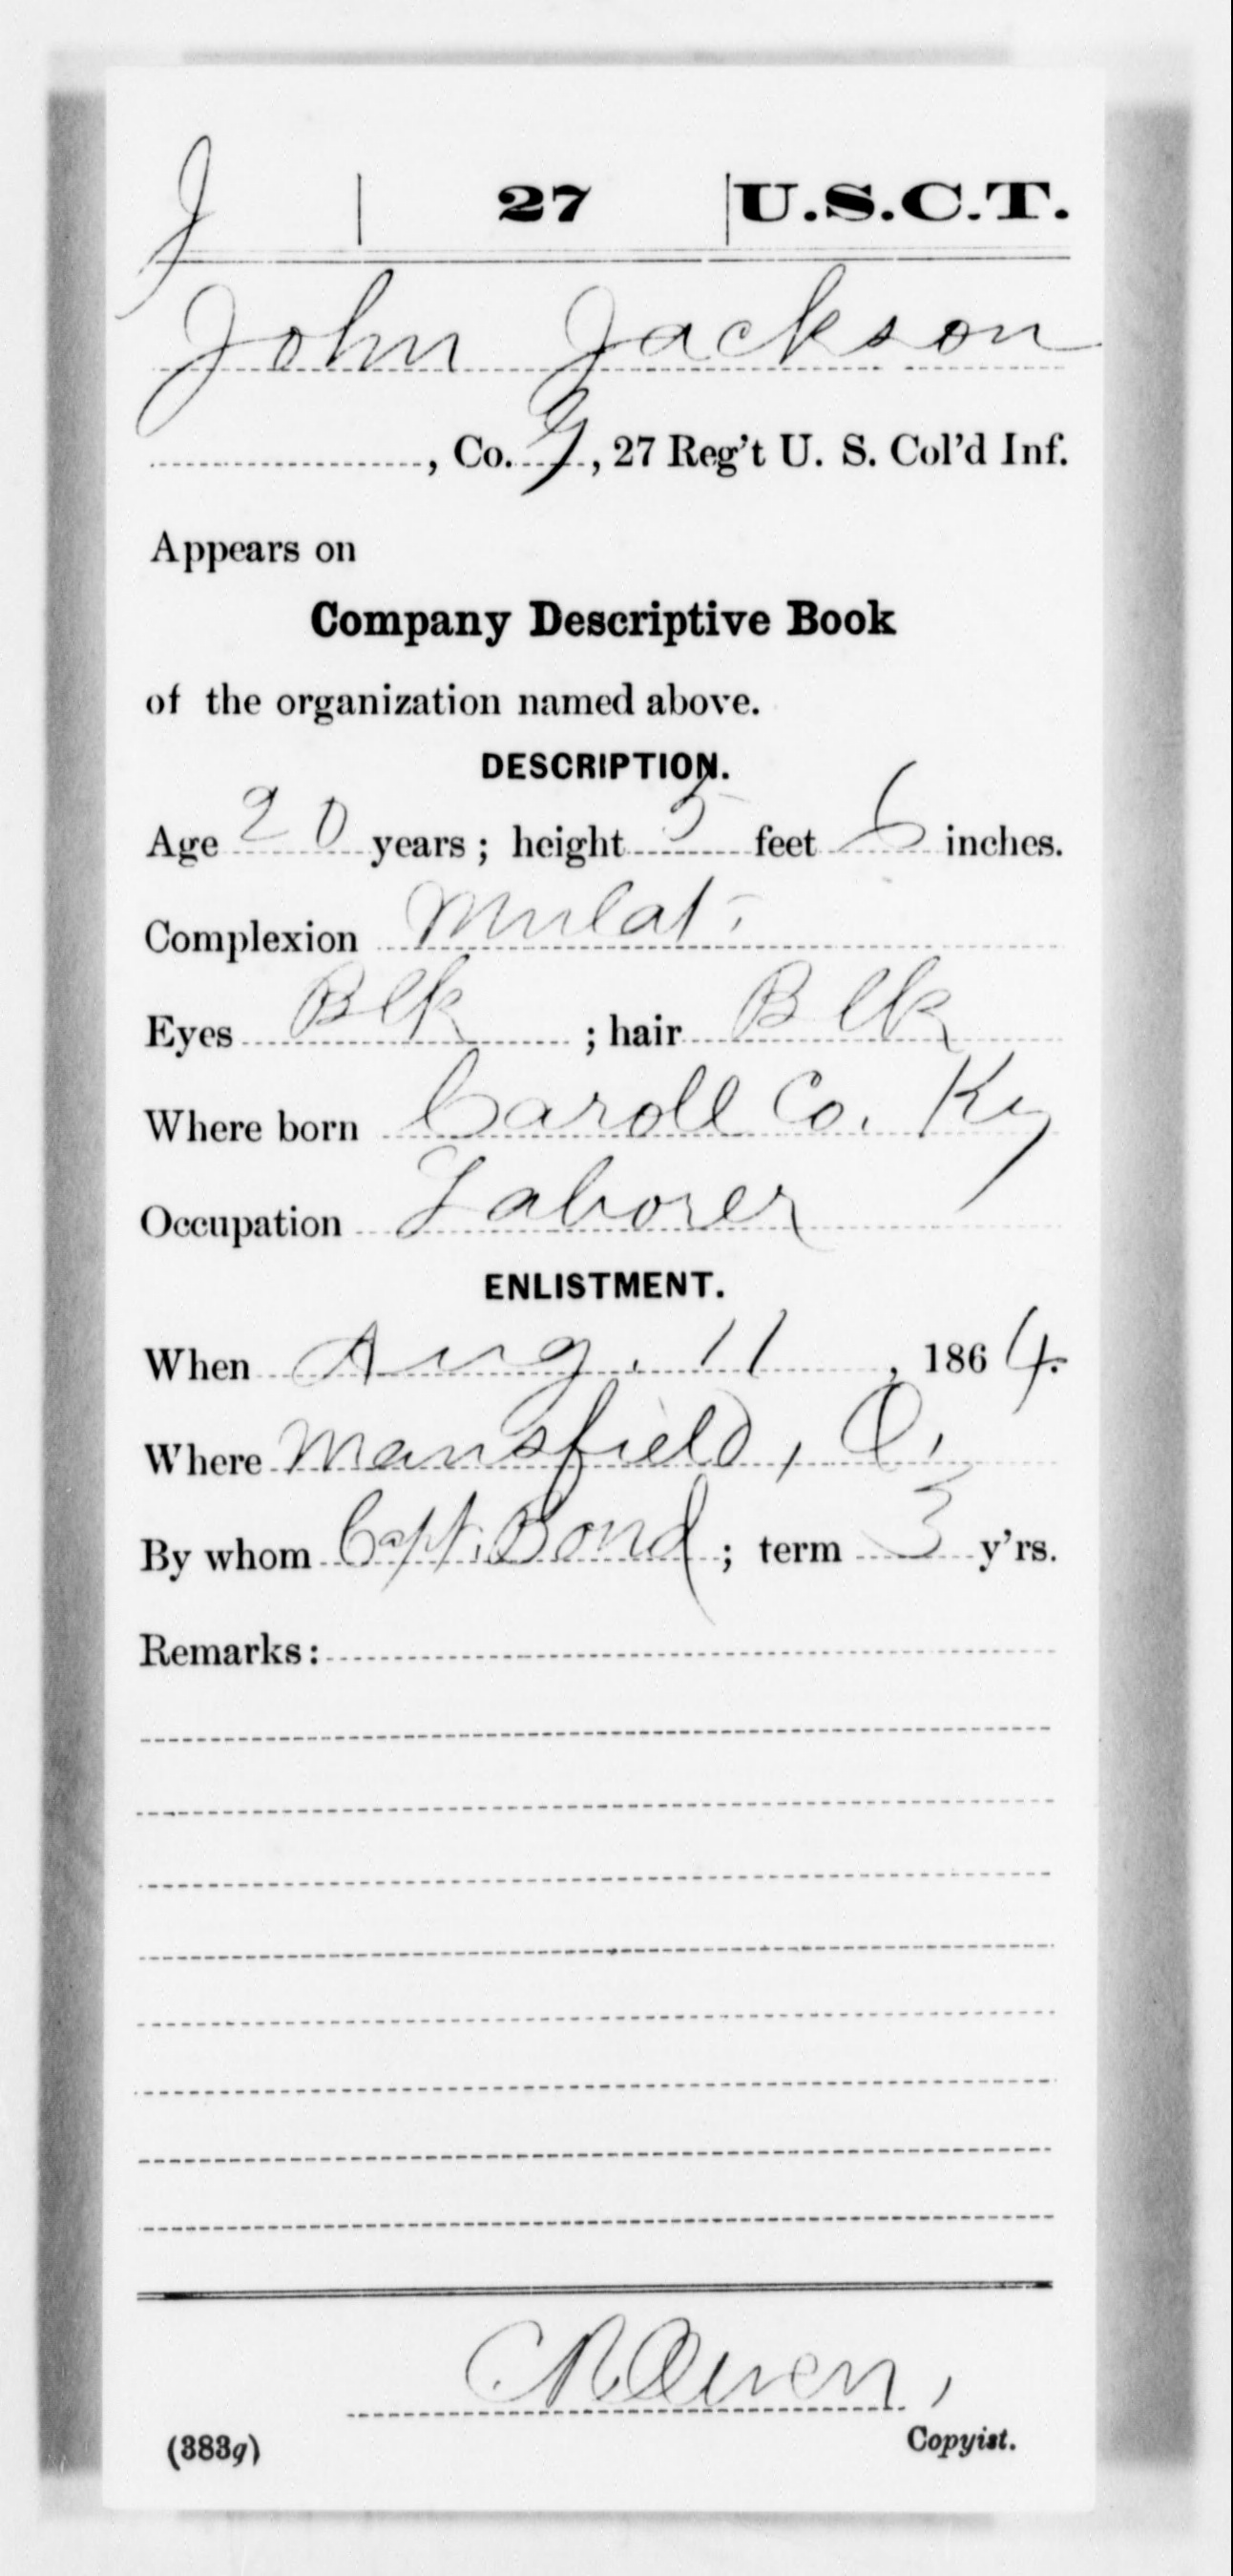 J | 27 | U.S.C.T.
John Jackson
, Co. G, 27 Reg't U. S. Col'd Inf.
Appears on
Company Descriptive Book
of the organization named above.
DESCRIPTION.
Age 20 years; height 5 feet 6 inches.
Complexion Mulat.
Eyes Blk ; hair Blk
Where born Caroll Co. Ky
Occupation Laborer
ENLISTMENT.
When Aug. 11, 1864.
Where Mansfield, O.
By whom Capt. Bond; term 3 y'rs.
Remarks:
CROwen,
(383g) Copyist.